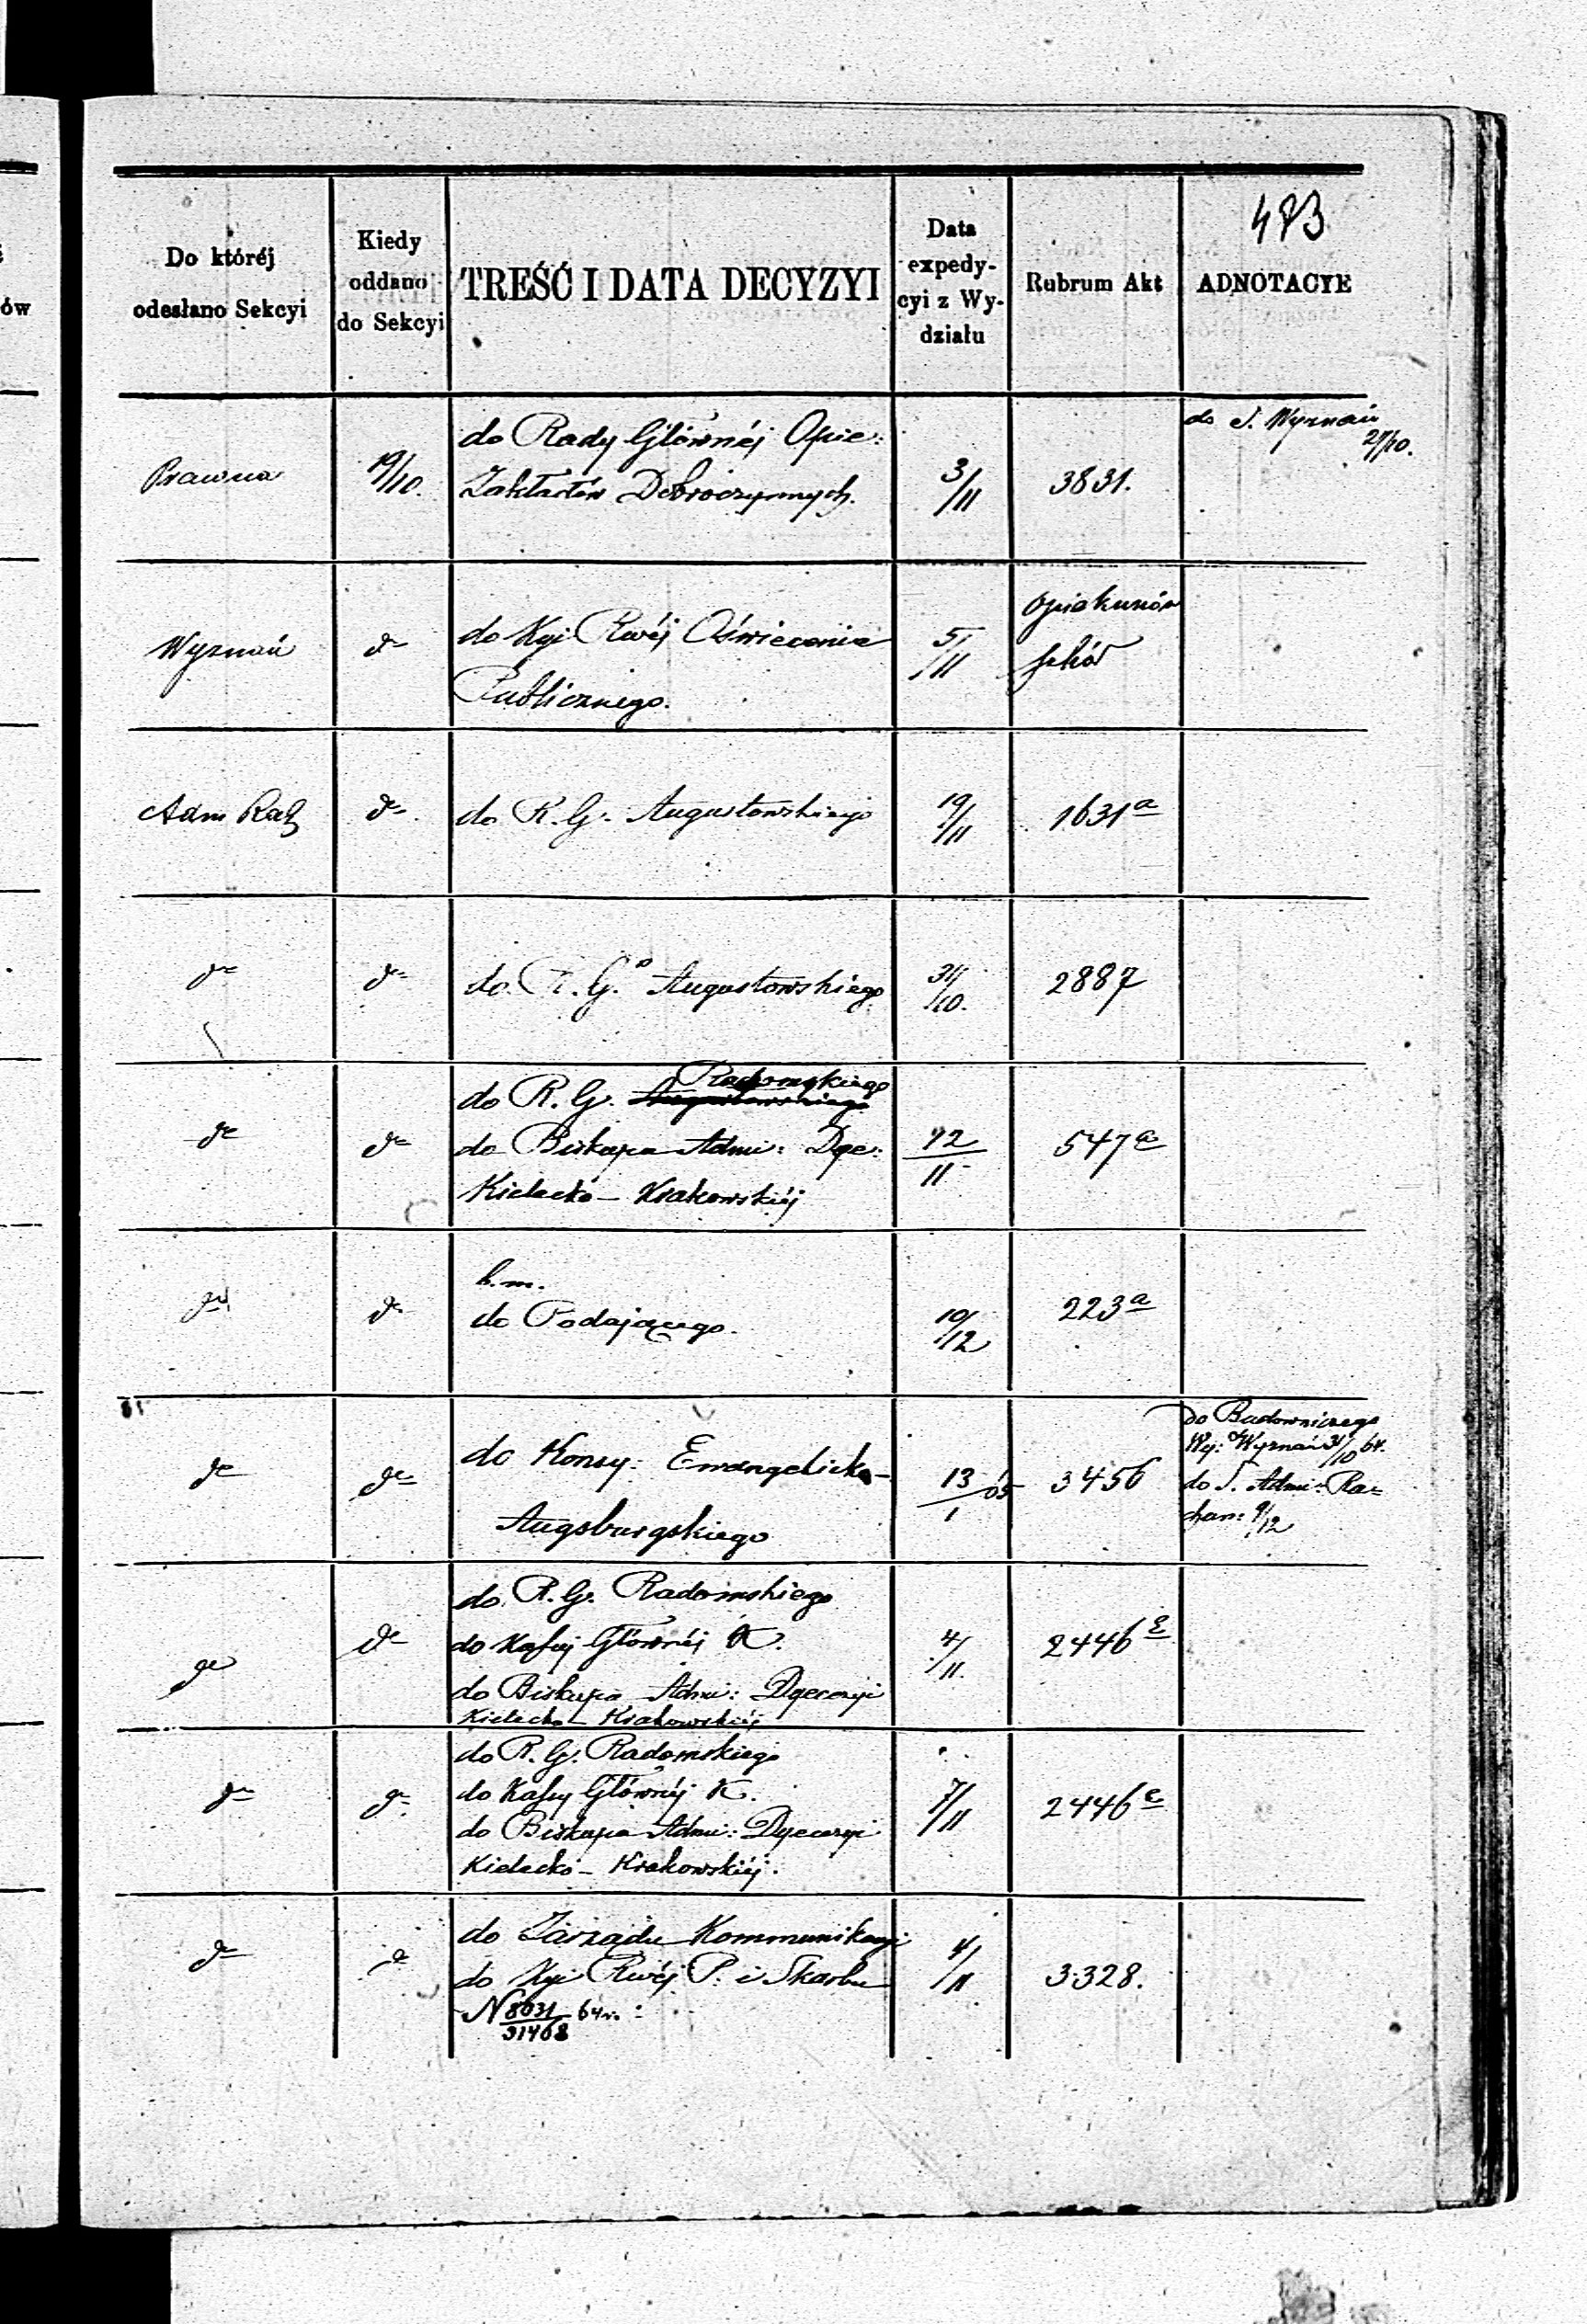 473
Do któréj
odesłano Sekcyi
Kiedy
oddano
do Sekcyi
TREŚĆ I DATA DECYZYI
Data
expedy-
cyi z Wy-
działu
Rubrum Akt
ADNOTACYE
Prawna
19/10.
do Rady Głównéj Opie:
Zakładów Dobroczynnych.
3/11
3831.
do S. Wyznań
Wyznań
do
do Kyi Rwéj Oświecenia
Publicznego.
5/11
Opiekunów
szkół
Adm Rach
do
do R. G. Augustowskiego
19/11
1631 a
do
do
do R. G. Augustowskiego
31/10.
2887
do
do
do R. G. Augustowskiego Radomskiego
do Biskupa Admi: Dye:
Kielecko - Krakowskiéj
12/11
547 a
do
do
b. m.
do Podającego.
10/12
223 a
do
do
do Konsy: Ewangelicko-
Augsburgskiego
13/1 65
3456
do Budowniczego
Wy: Wyznań 31/10 64.
do S. Admi: Ra=
chun: 9/12
do
do
do R. G. Radomskiego
do Kassy Głównéj K.
do Biskupa Admi: Dyecezyi
Kielecko - Krakowskiéj
4/11.
2446 E
do
do
do R. G. Radomskiego
do Kassy Głównéj K.
do Biskupa Admi: Dyecezyi
Kielecko - Krakowskiéj.
7/11
2446 E
do
do
do Zarządu Kommunikacyi
do Kyi Rwéj P. i Skarbu
N 8631/31468 64 r.
4/11
3328.